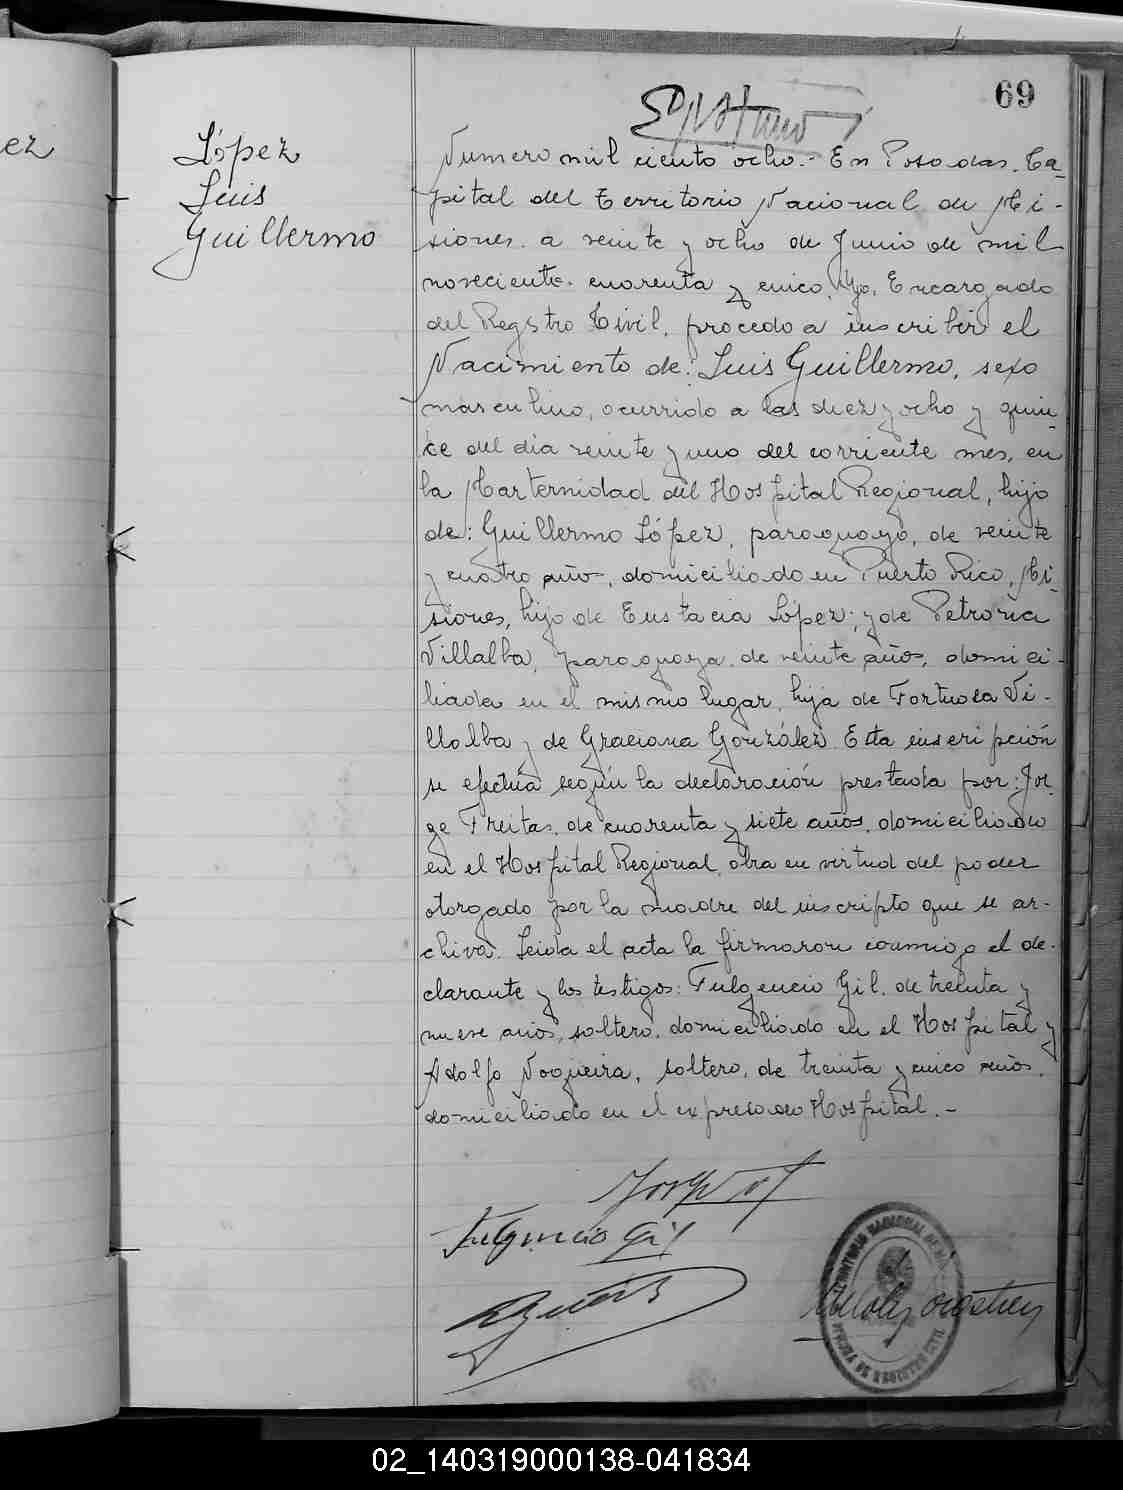 69
ez
López
Luis
Guillermo
Numero mil ciento ocho.- En Posadas, Ca-
pital del Territorio Nacional de Mi-
siones. a veinte y ocho de Junio de mil
novecientos cuarenta y cinco, Yo, Encargado
del Registro Civil, procedo a inscribir el
Nacimiento de: Luis Guillermo, sexo
masculino, ocurrido a las diez y ocho y quin-
ce del día veinte y uno del corriente mes, en
la Marternidad del Hospital Regional, hijo
de: Guillermo López, paraguayo, de veinte
y cuatro años, domiciliado en Puerto Rico, Mi-
siones, hijo de Eustacia López; y de Petrona
Villalba, paraguaya, de veinte años, domici-
liada en el mismo lugar, hija de Vi-
llalba y de Graciana González. Esta inscripción
se efectúa según la declaración prestada por: Jor-
ge Freitas, de cuarenta y siete años, domiciliado
en el Hospital Regional, obra en virtud del poder
otorgado por la madre del inscripto que se ar-
chiva. Leida el acta la firmaron conmigo el de-
clarante y los testigos: Fulgencio Gil, de treinta y
nueve años, soltero, domiciliado en el Hospital y
Adolfo Nogueira, soltero, de treinta y cinco años,
domiciliado en el expresado Hospital.-
Fulgencio Gil
02_140319000138-041834